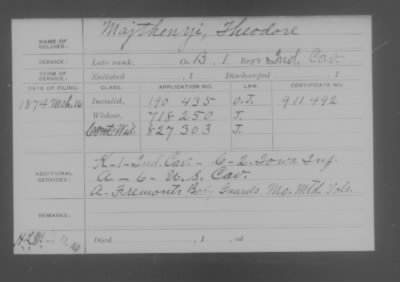 NAME OF SOLDIER: Majthenyi, Theodore
SERVICE: Late rank, Co. B, 1 Reg't Ind. Cav.
TERM OF SERVICE: Enlisted , 1 Discharged , 1
DATE OF FILING. CLASS. APPLICATION NO. LAW. CERTIFICATE NO.
1874 Mch. 16 Invalid, 190 435 911492
Widow, 718 250 J.
Cont Wid. 827 303 J.
ADDITIONAL SERVICES: K-1-Ind. Cav. - C-2-Iowa Inf.
A-6-U.S. Cav.
A-Fremonts Body Guards Mo. Mtd. Vols.
REMARKS:
Died , 1 , at